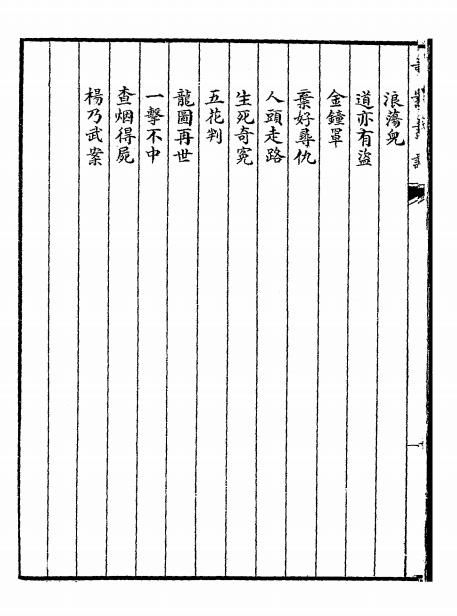 浪蕩兒
道亦有盜
金鐘罩
棄好尋仇
人頭走路
生死奇冤
五花判
龍圖再世
一擊不中
查烟得屍
楊乃武案